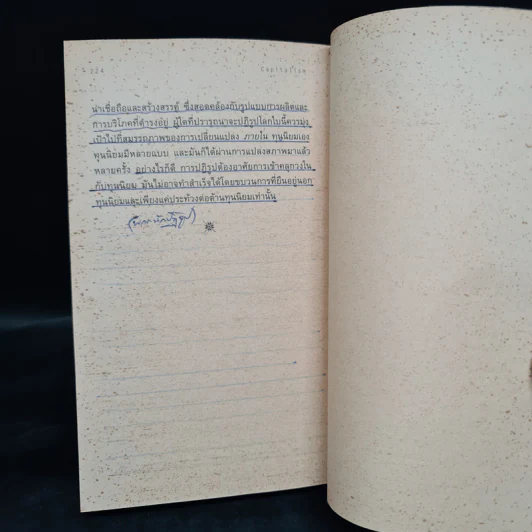 224
Capitalism
น่าเชื่อถือและสร้างสรรค์ ซึ่งสอดคล้องกับรูปแบบการผลิตและ
การบริโภคที่ดำรงอยู่ ผู้ใดที่ปรารถนาจะปฏิรูปโลกใบนี้ควรมุ่ง
เป้าไปที่สมรรถภาพของการเปลี่ยนแปลง ภายใน ทุนนิยมเอง
ทุนนิยมมีหลายแบบ และมันก็ได้ผ่านการแปลงสภาพมาแล้ว
หลายครั้ง อย่างไรก็ดี การปฏิรูปต้องอาศัยการเข้าคลุกวงใน
กับทุนนิยม มันไม่อาจทำสำเร็จได้โดยขบวนการที่ยืนอยู่นอก
ทุนนิยมและเพียงแค่ประท้วงต่อต้านทุนนิยมเท่านั้น